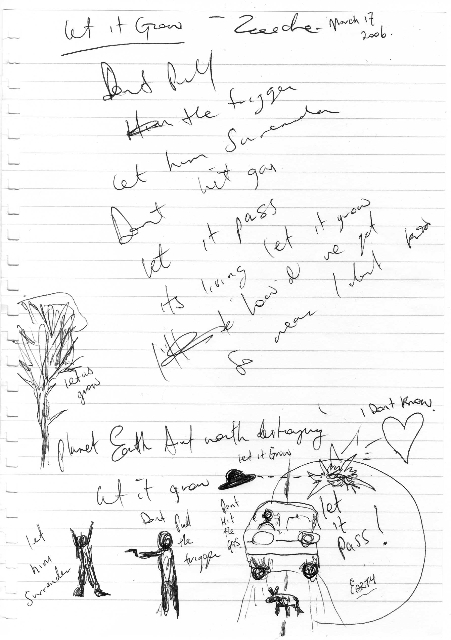 Let it Grow - March 17
2006.
Dont Pull
the trigger
Let him Surrender
Dont hit gas
Let it pass
its living let it grow
How'd we get
So near I dont
Let us
grow
I Dont Know.
Planet Earth Aint worth destroying
Let it Grow
Let it grow
Let
him
Surrender
Dont Pull
the
trigger
Dont
Hit
the
gas
Let
it
Pass!
EARTH